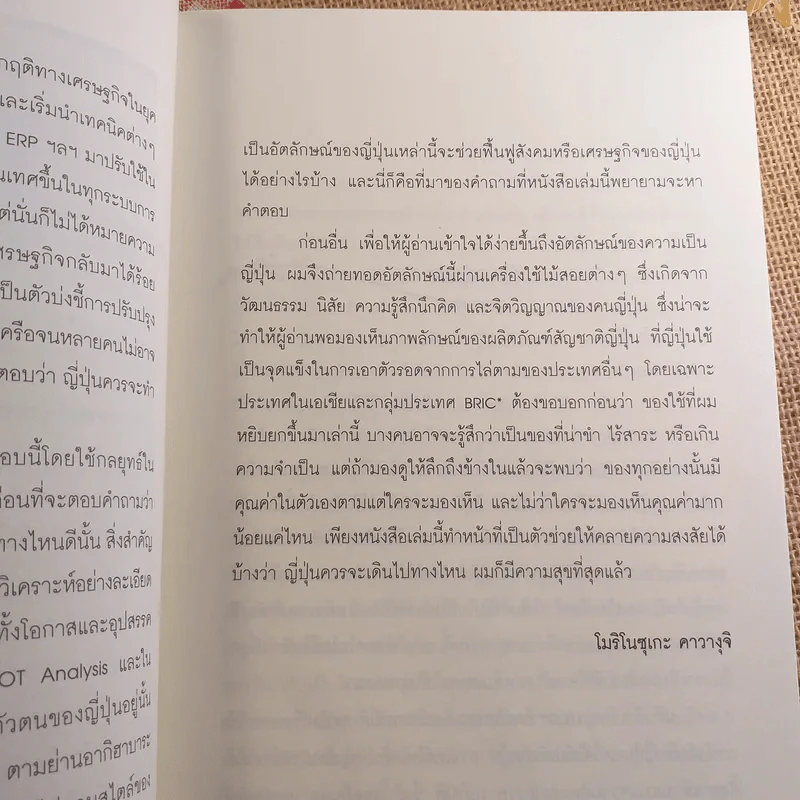 กฤติทางเศรษฐกิจในยุค
และเริ่มนำเทคนิคต่างๆ
ERP ฯลฯ มาปรับใช้ใน
นเทศขึ้นในทุกระบบการ
ต่นั่นก็ไม่ได้หมายความ
ศรษฐกิจกลับมาได้ร้อย
เป็นตัวบ่งชี้การปรับปรุง
ครือจนหลายคนไม่อาจ
ตอบว่า ญี่ปุ่นควรจะทำ
อบนี้โดยใช้กลยุทธ์ใน
ก่อนที่จะตอบคำถามว่า
ทางไหนดีนั้น สิ่งสำคัญ
วิเคราะห์อย่างละเอียด
ทั้งโอกาสและอุปสรรค
OT Analysis และใน
ตัวตนของญี่ปุ่นอยู่นั้น
ตามย่านอากิฮาบาระ
เป็นอัตลักษณ์ของญี่ปุ่นเหล่านี้จะช่วยฟื้นฟูสังคมหรือเศรษฐกิจของญี่ปุ่น
ได้อย่างไรบ้าง และนี่ก็คือที่มาของคำถามที่หนังสือเล่มนี้พยายามจะหา
คำตอบ
ก่อนอื่น เพื่อให้ผู้อ่านเข้าใจได้ง่ายขึ้นถึงอัตลักษณ์ของความเป็น
ญี่ปุ่น ผมจึงถ่ายทอดอัตลักษณ์นี้ผ่านเครื่องใช้ไม้สอยต่างๆ ซึ่งเกิดจาก
วัฒนธรรม นิสัย ความรู้สึกนึกคิด และจิตวิญญาณของคนญี่ปุ่น ซึ่งน่าจะ
ทำให้ผู้อ่านพอมองเห็นภาพลักษณ์ของผลิตภัณฑ์สัญชาติญี่ปุ่น ที่ญี่ปุ่นใช้
เป็นจุดแข็งในการเอาตัวรอดจากการไล่ตามของประเทศอื่นๆ โดยเฉพาะ
ประเทศในเอเชียและกลุ่มประเทศ BRIC* ต้องขอบอกก่อนว่า ของใช้ที่ผม
หยิบยกขึ้นมาเล่านี้ บางคนอาจจะรู้สึกว่าเป็นของที่น่าขำ ไร้สาระ หรือเกิน
ความจำเป็น แต่ถ้ามองดูให้ลึกถึงข้างในแล้วจะพบว่า ของทุกอย่างนั้นมี
คุณค่าในตัวเองตามแต่ใครจะมองเห็น และไม่ว่าใครจะมองเห็นคุณค่ามาก
น้อยแค่ไหน เพียงหนังสือเล่มนี้ทำหน้าที่เป็นตัวช่วยให้คลายความสงสัยได้
บ้างว่า ญี่ปุ่นควรจะเดินไปทางไหน ผมก็มีความสุขที่สุดแล้ว
โมริโนซุเกะ คาวางุจิ